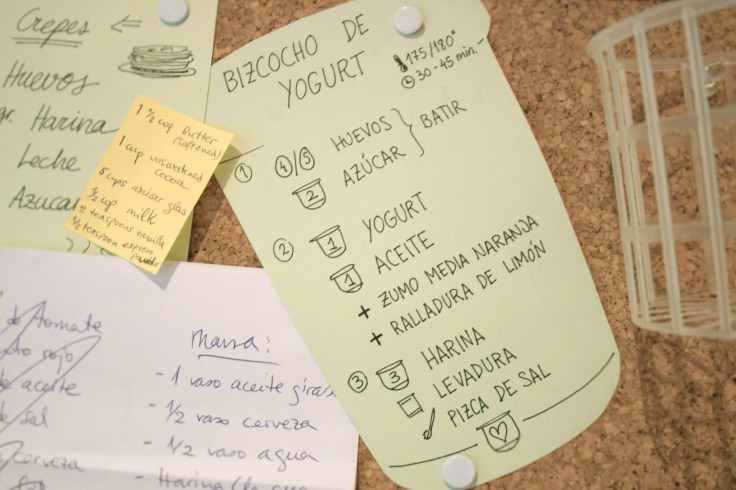 Crepes ⇐
Huevos
gr. Harina
Leche
Azucar
1 1/2 cop butter
(softened)
1 cup unsweetened
cocoa
5 cups azúcar glas
1/2 cop milk
2 teaspoons vanilla
1/2 teaspoon espresso
BIZCOCHO DE
YOGURT
175/180°
30-45 min.
① 4/5 HUEVOS
2 AZÚCAR } BATIR
② 1 YOGURT
1 ACEITE
+ ZUMO MEDIA NARANJA
+ RALLADURA DE LIMÓN
③ 3 HARINA
LEVADURA
PIZCA DE SAL
de tomate
rojo
de aceite
de sal
cerveza
masa:
- 1 vaso aceite giras
- 1/2 vaso cerveza
- 1/2 vaso agua
- Harina (la que